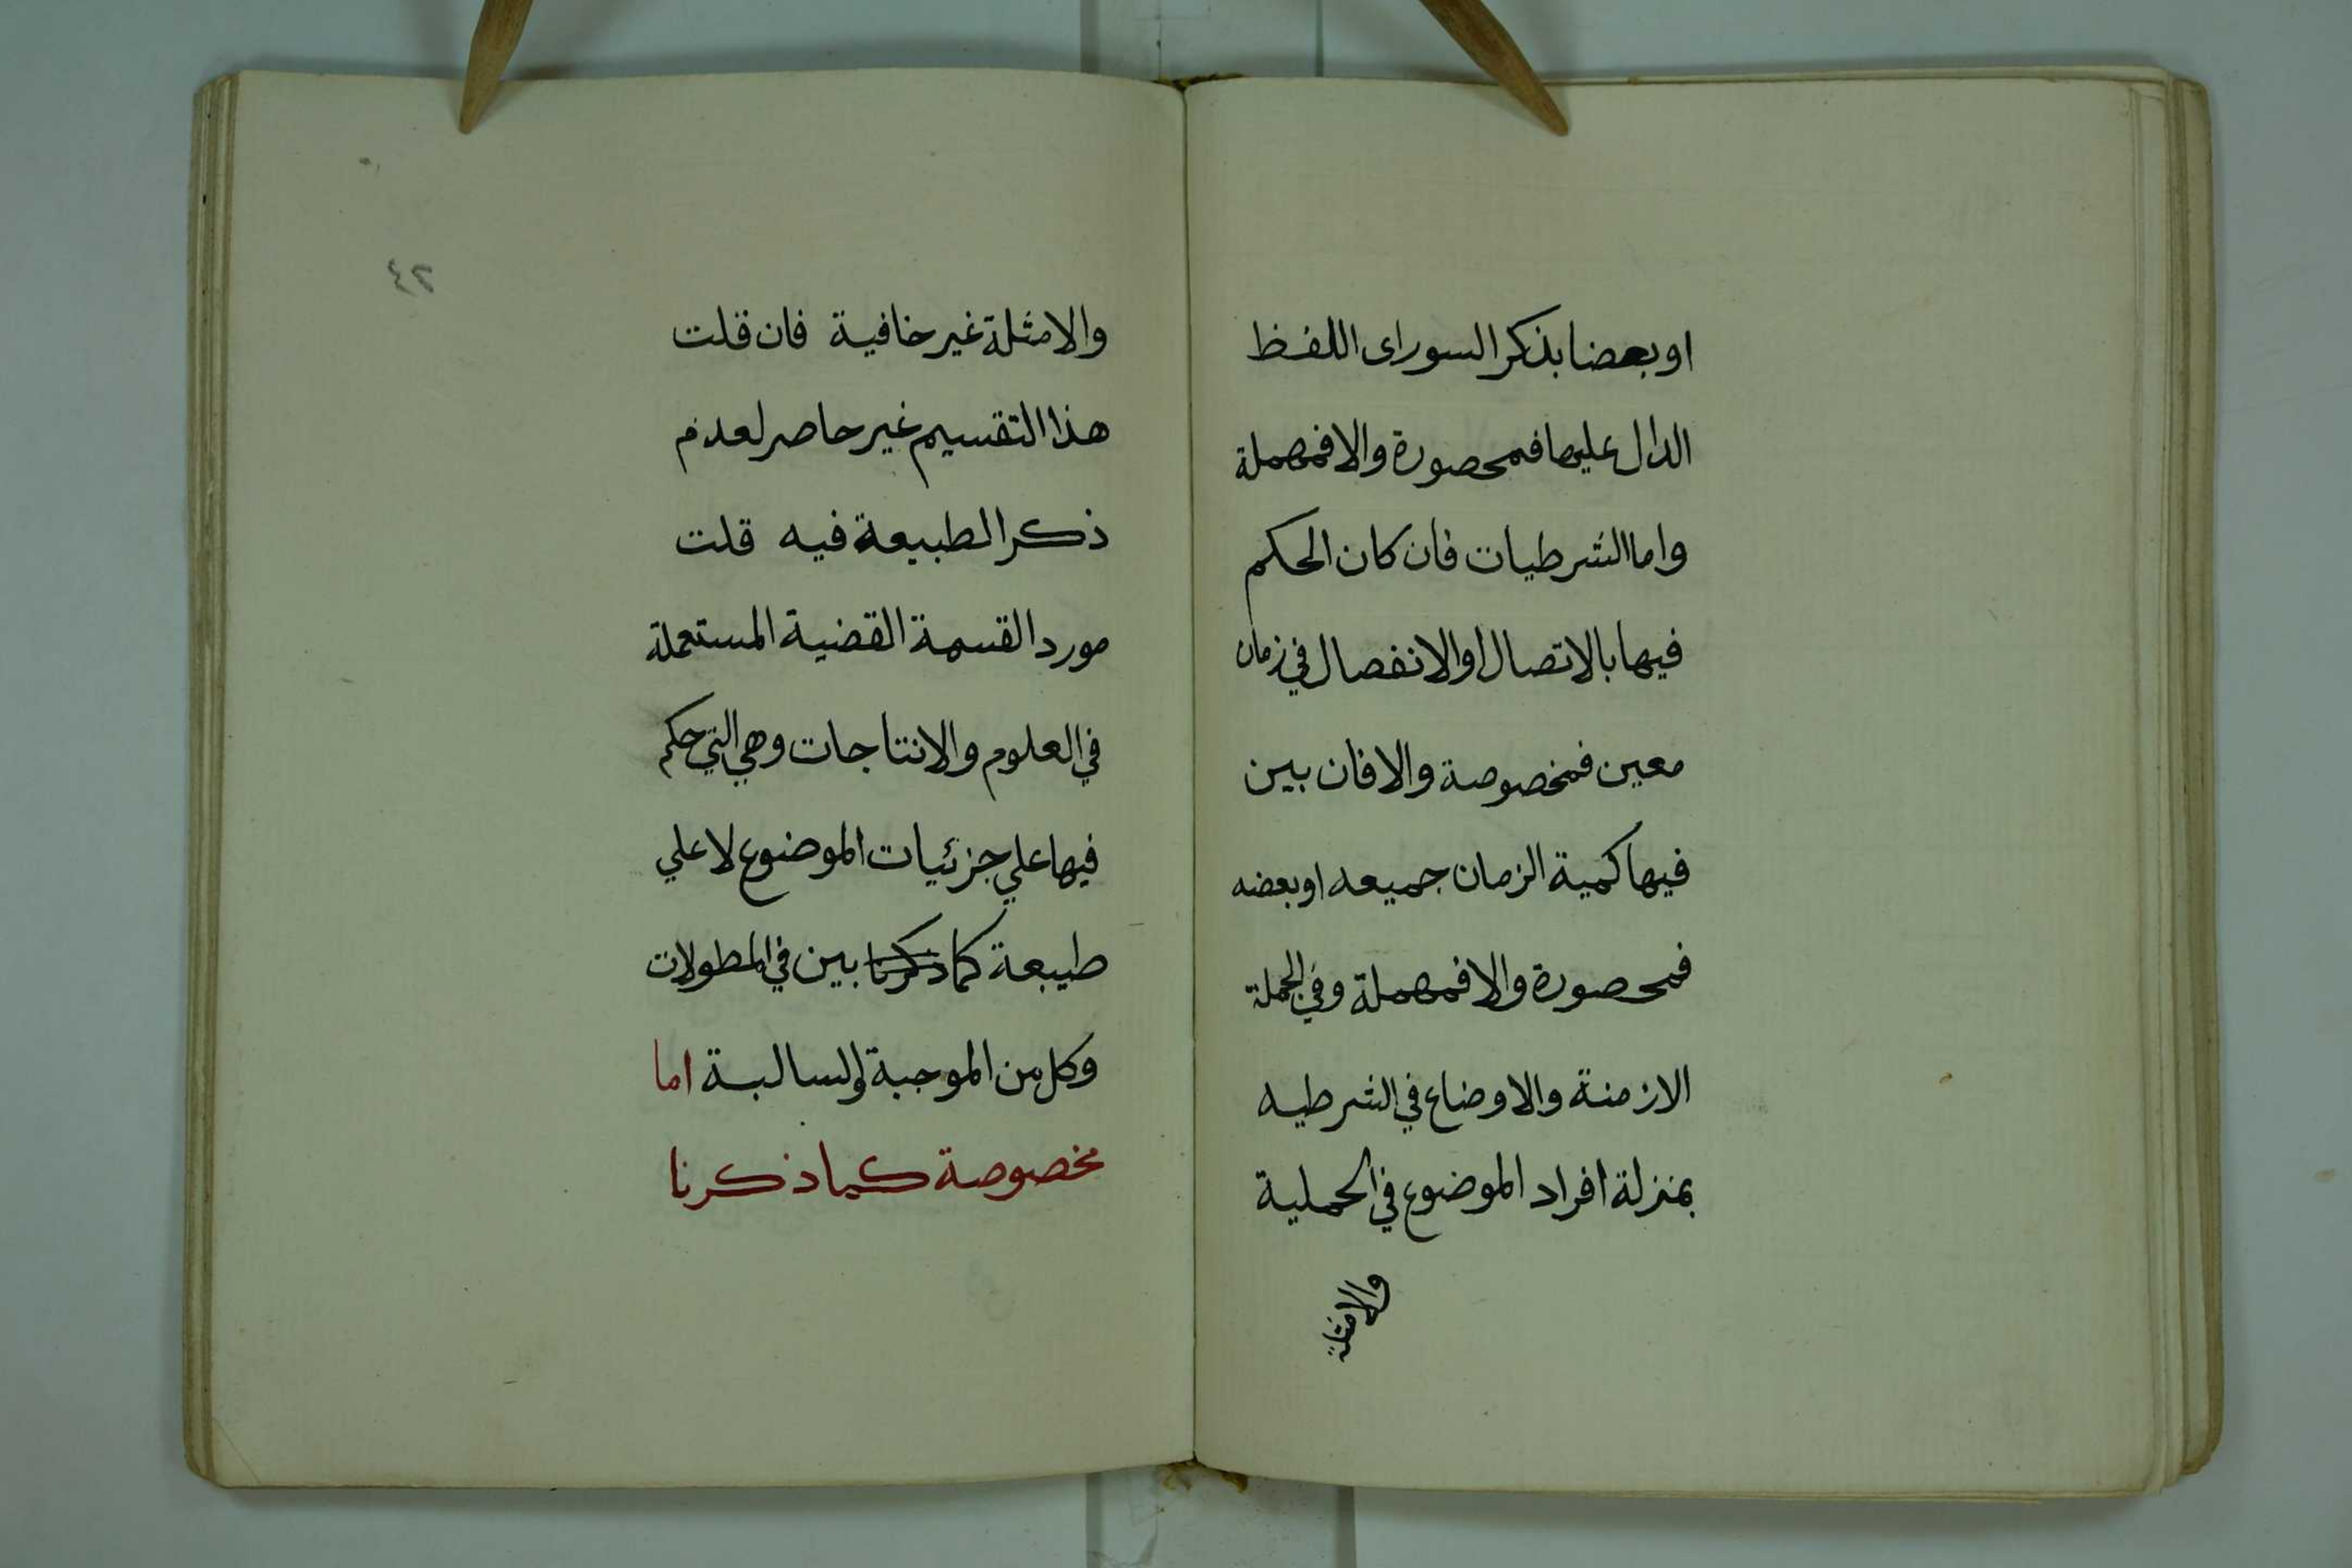 او بعضا بذكر السور اى اللفظ
الدال عليها فمحصورة والا فمهملة
واما الشرطيات فان كان الحكم
فيها بالاتصال او الانفصال في زمان
معين فمخصوصة والا فان بين
فيها كمية الزمان جميعه او بعضه
فمحصورة والا فمهملة وفي الجملة
الازمنة والاوضاع في الشرطيه
بمنزلة افراد الموضوع في الحملية
والامثلة
٤٢
والامثلة غير خافية فان قلت
هذا التقسيم غير حاصر لعدم
ذكر الطبيعة فيه قلت
مورد القسمة القضية المستعملة
في العلوم والانتاجات وهي التي حكم
فيها علي جزئيات الموضوع لا علي
طبيعة كما ذكرنا بين في المطولات
وكل من الموجبة والسالبة اما
مخصوصة كما ذكرنا